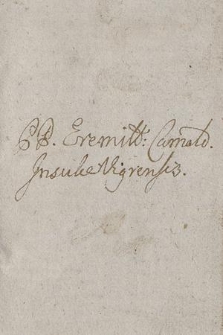 PP. Eremitt: Camald.
Insulæ Wigrensis.